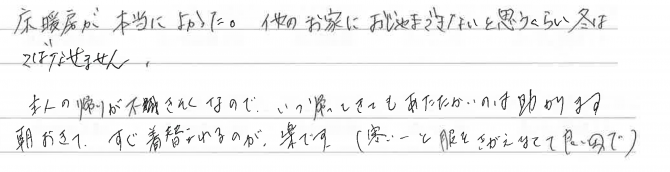 床暖房が本当によかった。他のお家におじゃまできないと思うくらい冬は
てばなせません。
主人の帰りが不規則なので、いつ帰ってきてもあたたかいのは助かります
朝おきて、すぐ着替えれるのが、楽です（寒いーと服をきがえなくて良いので）